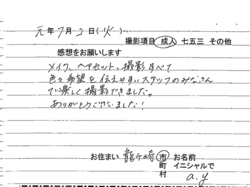 元年7月2日(火)
撮影項目 成人 七五三 その他
感想をお願いします
メイク、ヘアセット、撮影すべて
色々希望を伝えやすいスタッフのみなさん
で楽しく撮影できました。
ありがとうございました!
お住まい 龍ヶ崎 市 お名前
町 イニシャルで
村 a.y